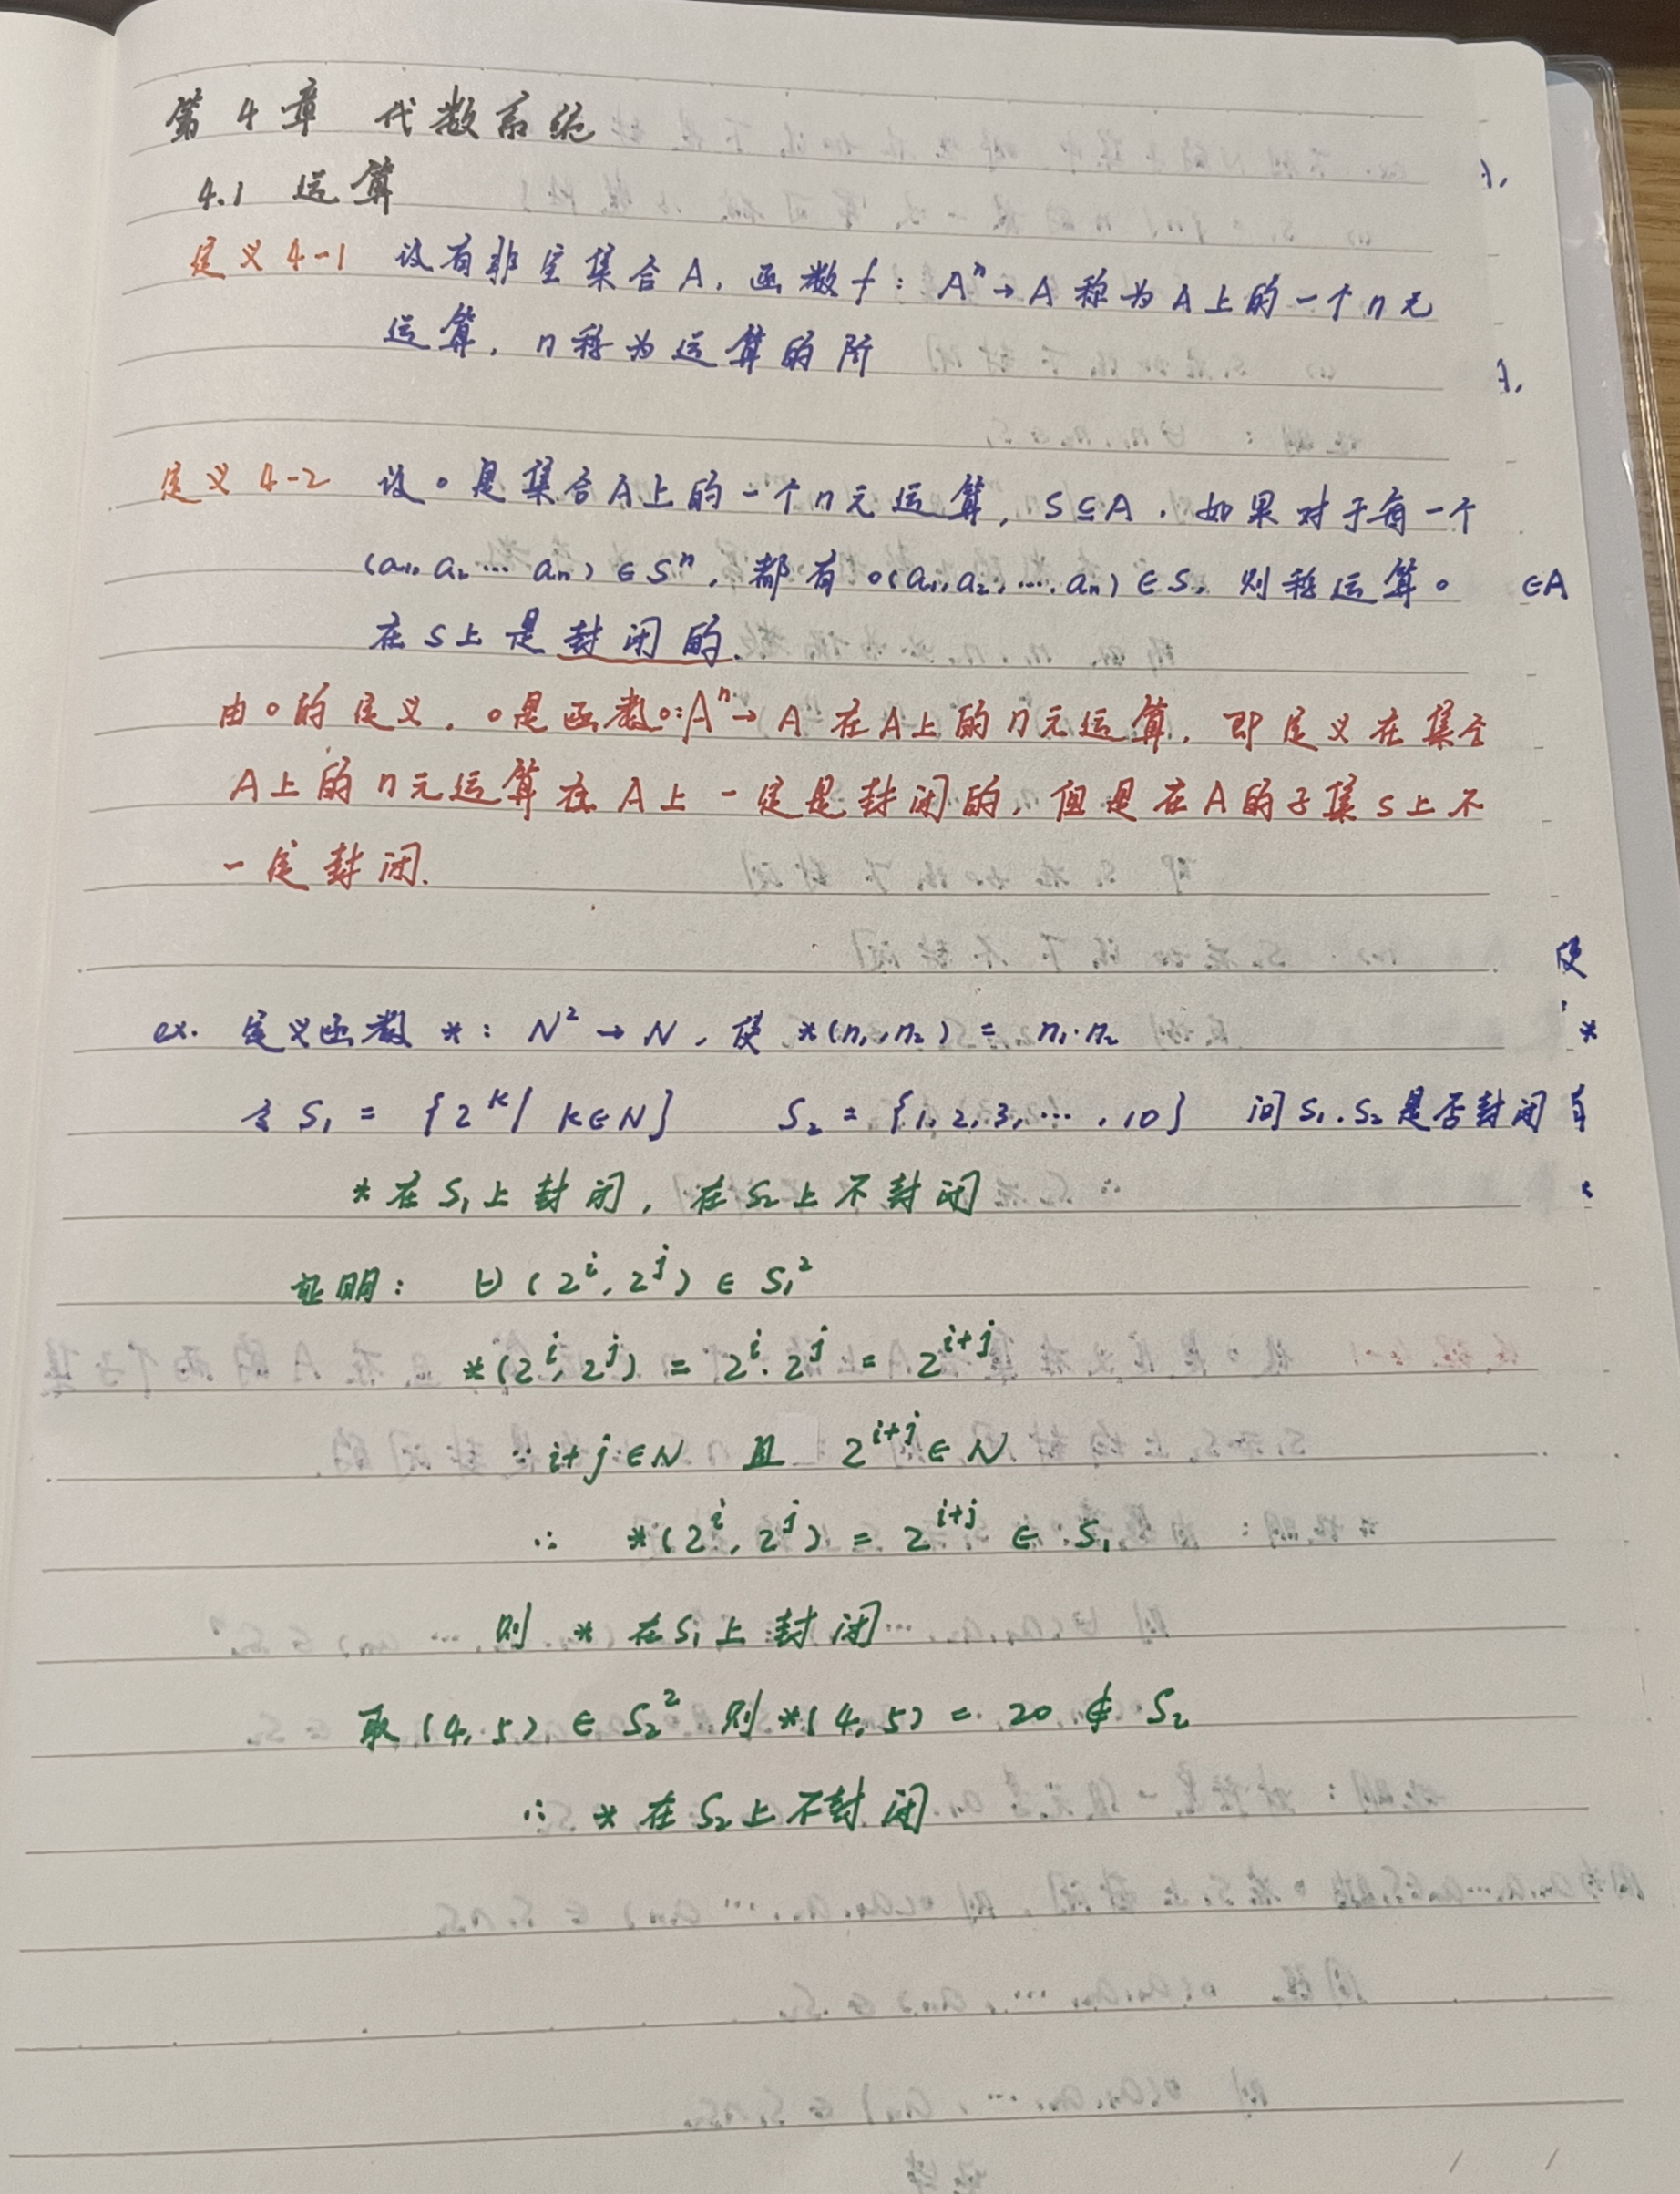 第4章 代数系统
4.1 运算
定义4-1 设有非空集合A，函数f：Aⁿ→A称为A上的一个n元
运算，n称为运算的阶
定义4-2 设∘是集合A上的一个n元运算，S⊆A．如果对于每一个
(a₁,a₂…aₙ)∈Sⁿ，都有∘(a₁,a₂,…,aₙ)∈S，则称运算∘
在S上是封闭的．
由∘的定义，∘是函数∘:Aⁿ→A在A上的n元运算，即定义在集合
A上的n元运算在A上一定是封闭的，但是在A的子集S上不
一定封闭．
ex. 定义函数 *： N²→N，使 *(n₁,n₂) = n₁·n₂
令 S₁ = {2ᵏ| k∈N} S₂ = {1,2,3,…,10} 问S₁.S₂是否封闭
*在S₁上封闭，在S₂上不封闭
证明： ∀(2ⁱ,2ʲ)∈S₁²
*(2ⁱ,2ʲ) = 2ⁱ·2ʲ = 2ⁱ⁺ʲ
∵ i+j∈N 且 2ⁱ⁺ʲ∈N
∴ *(2ⁱ,2ʲ) = 2ⁱ⁺ʲ ∈ S₁
则 * 在S₁上封闭
取(4,5)∈S₂² 则*(4,5) = 20 ∉ S₂
∴ *在S₂上不封闭
∈A
使
*